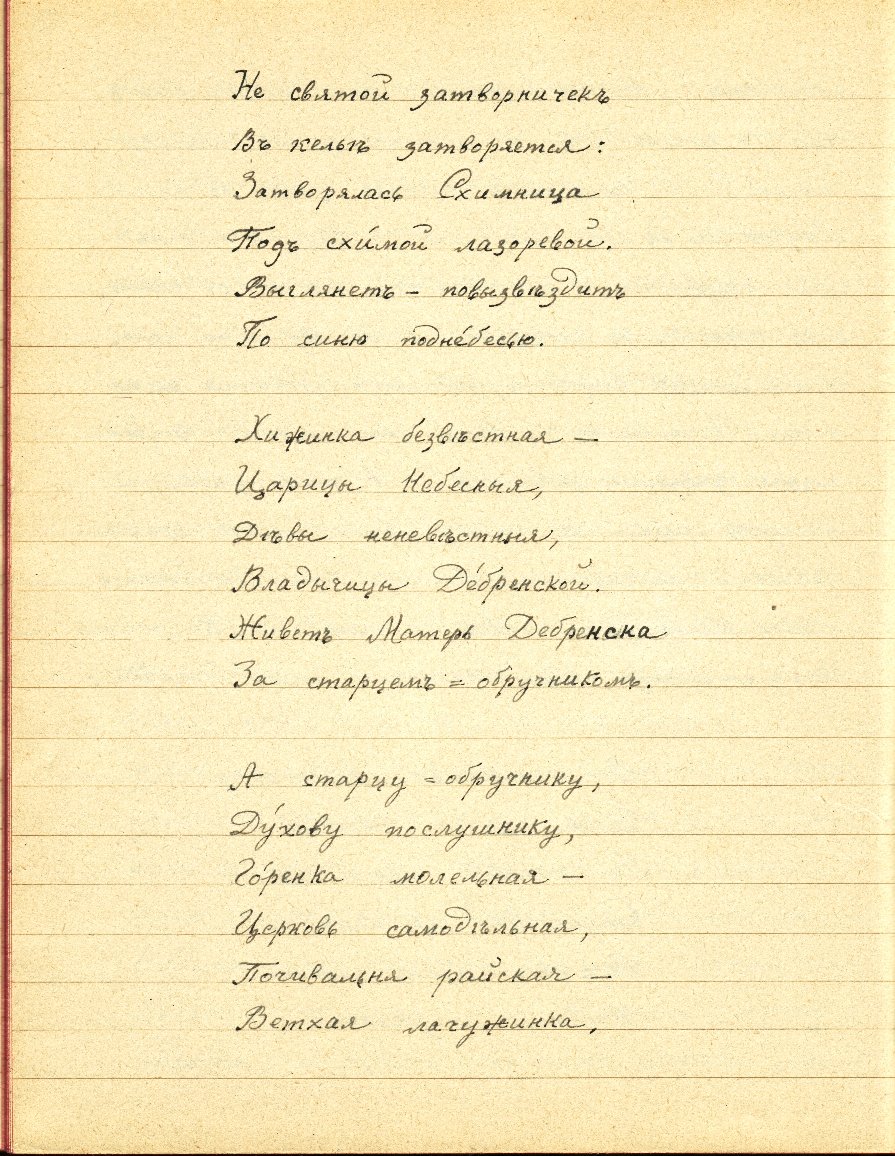 Не святой затворничекъ
Въ кельѣ затворяется:
Затворялась Схимница
Подъ схи́мой лазоревой.
Выглянетъ – повызвѣздитъ
По синю подне́бесью.
Хижинка безвѣстная –
Царицы Небесныя,
Дѣвы неневѣстныя,
Владычицы Де́бренской.
Живетъ Матерь Дебренска
За старцемъ = обручникомъ.
А старцу = обручнику,
Ду́хову послушнику,
Го́ренка молельная –
Церковь самодѣльная,
Почивальня райская –
Ветхая лачужинка,